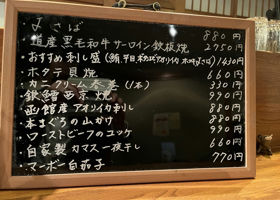 〆さば 880円
道産黒毛和牛サーロイン鉄板焼 2750円
・おすすめ刺し盛 1430円
・ホタテ貝焼 660円
・カニクリーム春巻(1本) 330円
・銀鱈西京焼 990円
・函館産アオリイカ刺し 880円
・本まぐろの山かけ 990円
・ローストビーフのユッケ 990円
・自家製カマス一夜干し 660円
・マーボー白茄子 770円